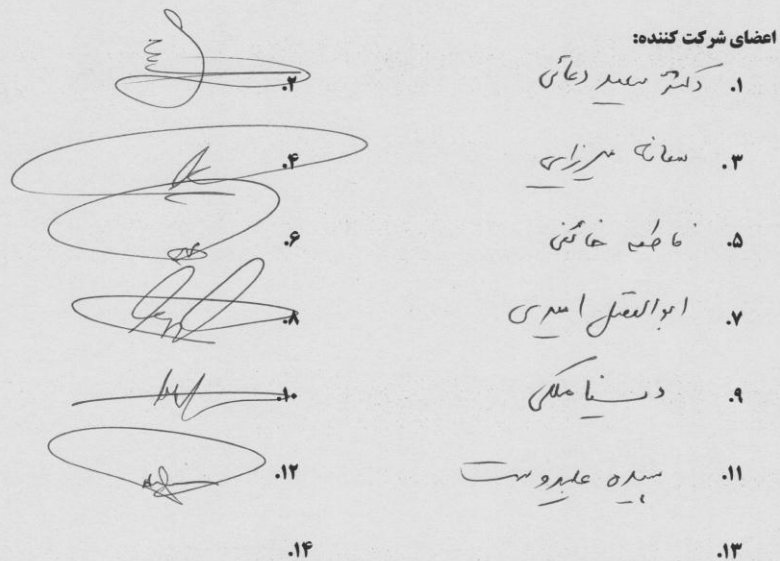 اعضای شرکت کننده:
۱. دکتر سعید دعائی ۲.
۳. سمانه میرزایی ۴.
۵. فاطمه خائفی ۶.
۷. ابوالفضل امیدی ۸.
۹. دنیا ملکی ۱۰.
۱۱. سپیده علیدوست ۱۲.
۱۳. ۱۴.